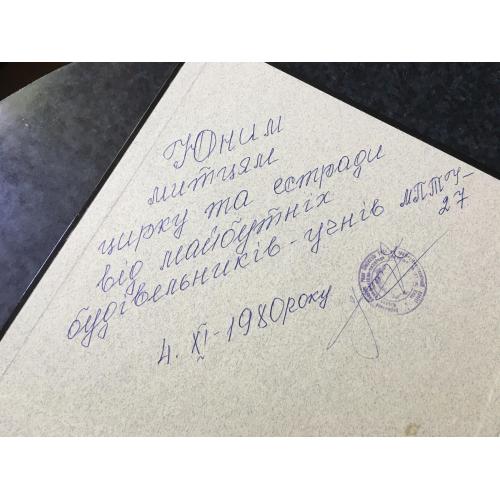 Юним
митцям
цирку та естради
від майбутніх
будівельників - учнів МПТУ-
27
4. XI - 1980 року